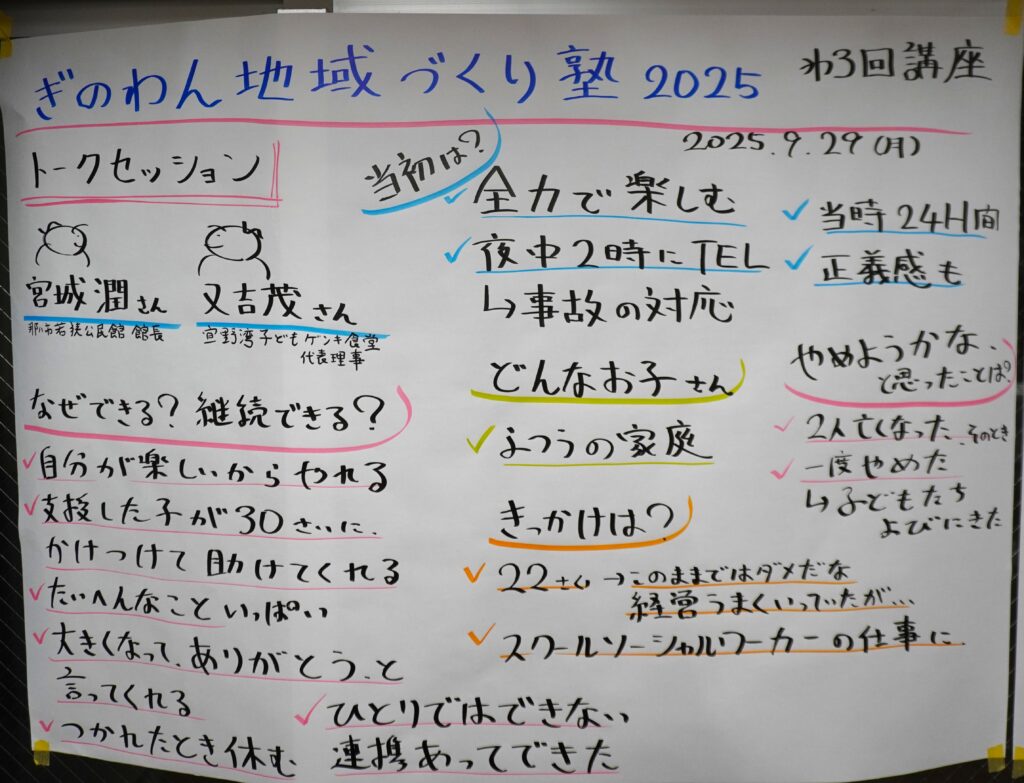 ぎのわん地域づくり塾 2025
第3回講座
2025.9.29(月)
トークセッション
宮城潤さん
那覇市若狭公民館 館長
又吉茂さん
宜野湾子どもゲンキ食堂
代表理事
なぜできる？継続できる？
自分が楽しいからやれる
支援した子が30さいに、
かけつけて助けてくれる
たいへんなこといっぱい
大きくなって、ありがとう、と
言ってくれる
つかれたとき休む
ひとりではできない
連携あってできた
当初は？
全力で楽しむ
夜中2時にTEL
↳事故の対応
当時24H間
正義感も
どんなお子さん
ふつうの家庭
きっかけは？
22さい→このままではダメだな
経営うまくいっていたが…
スクールソーシャルワーカーの仕事に
やめようかな、
と思ったことは？
2人亡くなった、そのとき
一度やめた
↳子どもたち
よびにきた